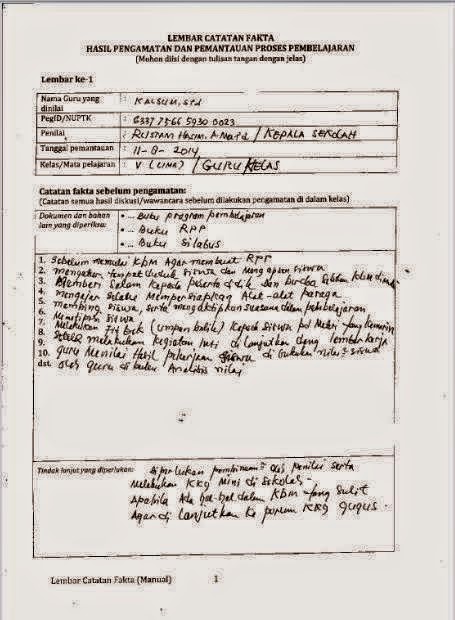 LEMBAR CATATAN FAKTA
HASIL PENGAMATAN DAN PEMANTAUAN PROSES PEMBELAJARAN
(Mohon diisi dengan tulisan tangan dengan jelas)
Lembar ke-1
Nama Guru yang dinilai : KALSUM, S.Pd
PegID/NUPTK : 6337 7566 5930 0023
Penilai : RUSTAM HASIM, A.Ma.Pd / KEPALA SEKOLAH
Tanggal pemantauan : 11-8-2014
Kelas/Mata pelajaran : V (LIMA) / GURU KELAS
Catatan fakta sebelum pengamatan:
(Catatan semua hasil diskusi/wawancara sebelum dilakukan pengamatan di dalam kelas)
Dokumen dan bahan lain yang diperiksa:
• ... Buku program pembelajaran
• ... Buku RPP
• ... Buku Silabus
1. Sebelum memulai KBM Agar membuat RPP
2. mengatur tempat duduk siswa dan mengapsen siswa
3. Memberi Salam kepada peserta didik dan berdoa
4. mengajar selalu Mempersiapkan Alat-alat peraga
5. siswa, serta mengaktifkan suasana dalam pembelajaran
6. siswa
7. Melakukan (umpan balik) kepada siswa yang kemarin
8. Setelah melakukan kegiatan inti di lanjutkan dengan lembar kerja
9. guru Menilai Hasil pekerjaan siswa di nilai siswa
10. oleh guru di buku Analisis nilai
dst.
Tindak lanjut yang diperlukan:
diperlukan pembinaan² oleh penilai serta
Melakukan KKG Mini di sekolah -
Apabila Ada hal-hal dalam KBM yang Sulit
Agar di lanjutkan ke porum KKG gugus.
Lembar Catatan Fakta (Manual) 1